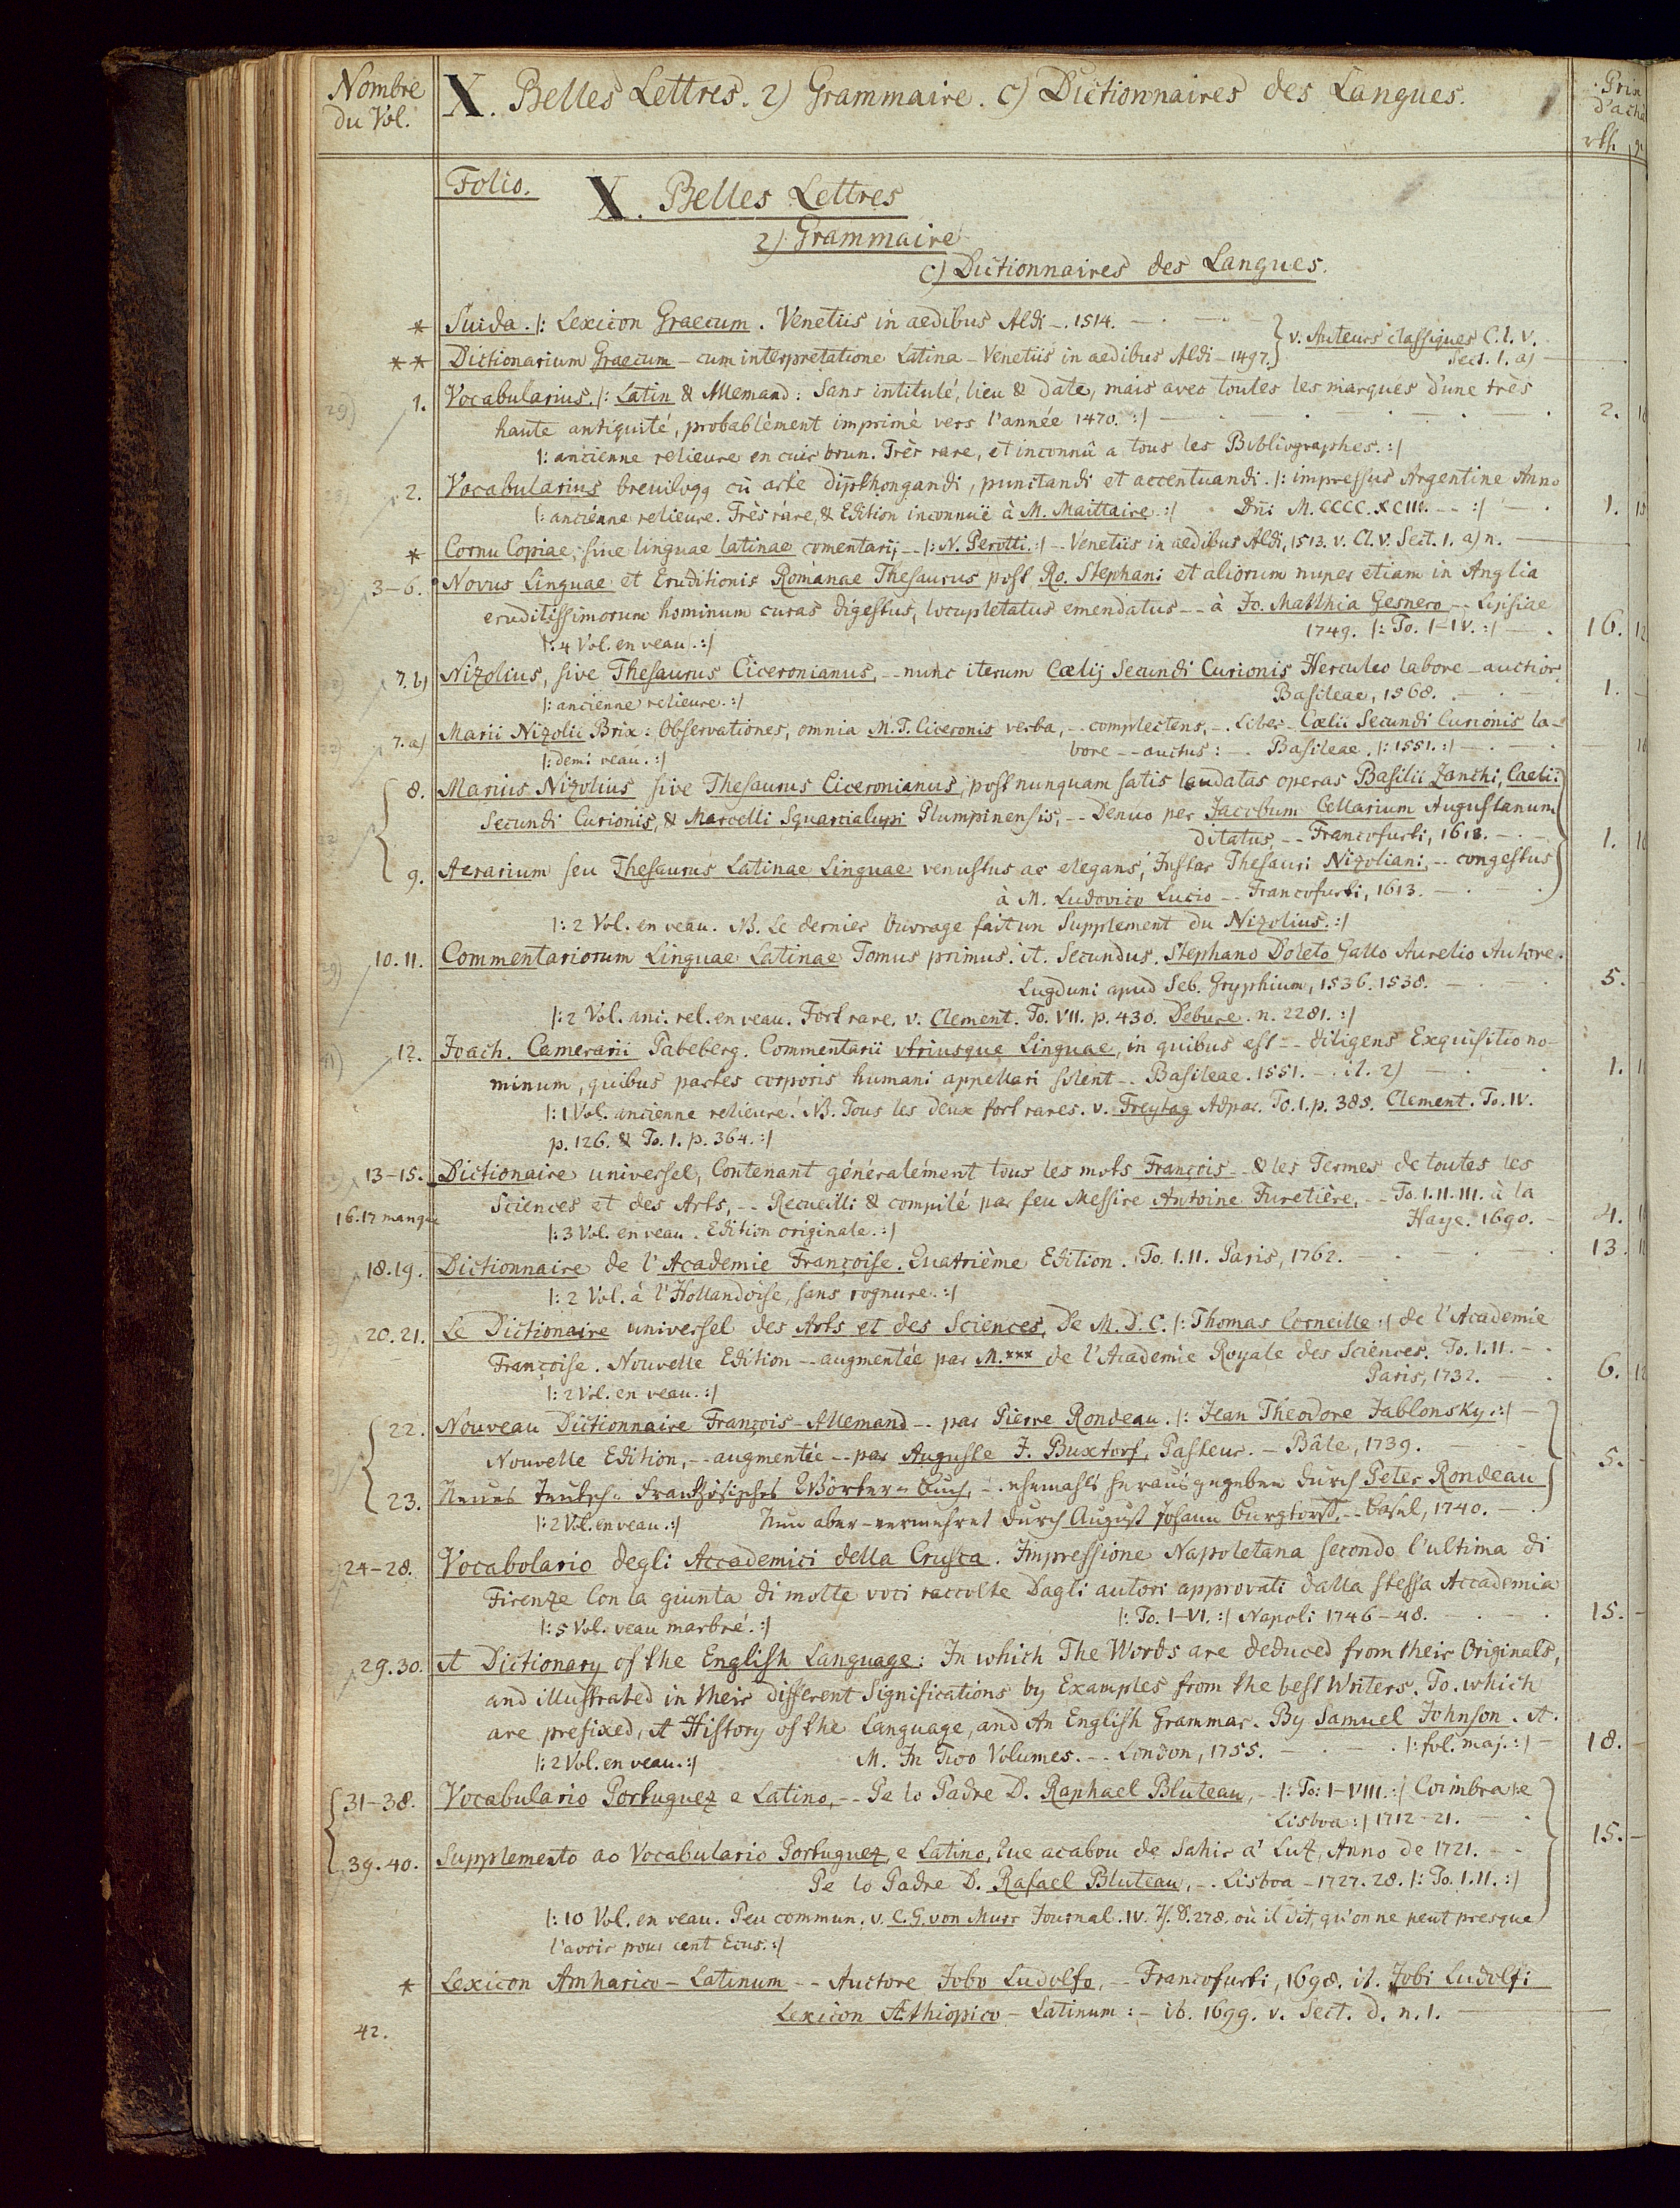 Nombre
du Vol.
X. Belles Lettres. 2) Grammaire. c) Dictionnaires des Langues.
Folio.
X. Belles Lettres
2) Grammaire
c) Dictionnaires des Langues.
* Suida. |: Lexicon Graecum. Venetiis in aedibus Aldi -. 1514.
** Dictionarium Graecum - cum interpretatione Latina - Venetiis in aedibus Aldi - 1497. } v. Auteurs classiques Cl. V.
Sect. 1. a)
1. Vocabularius. |: Latin & Allemand: Sans intitulé, lieu & date, mais avec toutes les marques d'une très
haute antiquité, probablément imprimé vers l'année 1470. :| 2.
|: ancienne relieure en cuir brun. Très rare, et inconnû a tous les Bibliographes. :|
2. Vocabularius breuiloqq cū arte dipthongandi, punctandi et accentuandi. |: impressus Argentine Anno
|: anciénne relieure. Très rare, & Edition inconnuë à M. Maittaire. :| Dn̄i M.CCCC.XCIII. -- :| 1.
* Cornu Copiae, sive linguae latinae comentarij, -- |: N. Perotti. :| -- Venetiis in aedibus Aldi, 1513. v. Cl. V. Sect. 1. a) n.
3-6. Novus Linguae et Eruditionis Romanae Thesaurus post Ro. Stephani et aliorum nuper etiam in Anglia
eruditissimorum hominum curas digestus, locupletatus emendatus -- à Jo. Matthia Gesnero -- Lipsiae
1749. |: To. I-IV. :| 16.
|: 4 Vol. en veau. :|
7.b) Nizolius, sive Thesaurus Ciceronianus, -- nunc iterum Cælij Secundi Curionis Herculeo labore - auctior
Basileae, 1568. 1.
|: ancienne relieure. :|
7.a) Marii Nizolii Brix: Observationes, omnia M. T. Ciceronis verba, -- complectens, -. Liber Cælii Secundi Curionis la-
bore -- auctus: -. Basileae. |: 1551. :|
|: demi veau. :|
8. Marius Nizolius sive Thesaurus Ciceronianus, post nunquam satis laudatas operas Basilii Zanchi, Caelii
Secundi Curionis, & Marcelli Squarcialupi Plumpinensis, -- Denuo per Jacobum Cellarium Augustanum
ditatus, -- Francofurti, 1613. 1.
9. Aerarium seu Thesaurus Latinae Linguae venustus ac elegans, Instar Thesauri Nizoliani, -- congestus
à M. Ludovico Lucio -- Francofurti, 1613.
|: 2 Vol. en veau. NB. Le dernier Ouvrage fait un Supplement du Nizolius. :|
10.11. Commentariorum Linguae Latinae Tomus primus. it. Secundus. Stephano Doleto Gallo Aurelio Autore.
Lugduni apud Seb. Gryphium, 1536. 1538. 5.
|: 2 Vol. anc. rel. en veau. Fort rare. v. Clement. To. VII. p. 430. Debure. n. 2281. :|
12. Joach. Camerarii Pabeberg. Commentarii utriusque Linguae, in quibus est -- diligens Exquisitio no-
minum, quibus partes corporis humani appellari solent -. Basileae. 1551. -. it. 2) 1.
|: 1 Vol. ancienne relieure. NB. Tous les deux fort rares. v. Freytag Adpar. To. I. p. 385. Clement. To. IV.
p. 126. & To. I. p. 364. :|
13-15. Dictionaire universel, Contenant généralément tous les mots François -- & les Termes de toutes les
16.17 manque Sciences et des Arts, -- Recueilli & compilé par feu Messire Antoine Furetière, -- To. I. II. III. à la
Haye. 1690. 4.
|: 3 Vol. en veau. Edition originale. :|
18.19. Dictionnaire de l'Academie Françoise. Quatrième Edition. To. I. II. Paris, 1762. 13.
|: 2 Vol. à l'Hollandoise, sans rognure. :|
20.21. Le Dictionaire universel des Arts et des Sciences, De M. D. C. |: Thomas Corneille :| de l'Academie
Françoise. Nouvelle Edition -- augmentée par M.*** de l'Academie Royale des Sciences. To. I. II.
Paris, 1732. 6.
|: 2 Vol. en veau. :|
22. Nouveau Dictionnaire François-Allemand -- par Pierre Rondeau. |: Jean Theodore Jablonsky. :|
Nouvelle Edition, -- augmentée -- par Auguste J. Buxtorf, Pasteur. - Bâle, 1739. 5.
23. Neues Teutsch-Frantzösisches Wörter-Buch, -. ehemahls herausgegeben durch Peter Rondeau
Nun aber - vermehret durch August Johann Burgtorff. -- Basel, 1740.
|: 2 Vol. en veau. :|
24-28. Vocabolario degli Accademici della Crusca. Impressione Napoletana secondo l'ultima di
Firenze Con la giunta di molte voci raccolte Dagli autori approvati dalla stessa Accademia
|: To. I-VI. :| Napoli 1746-48. 15.
|: 5 Vol. veau marbré. :|
29.30. A Dictionary of the English Language: In which The Words are deduced from their Originals,
and illustrated in their different Significations by Examples from the best Writers. To which
are prefixed, A History of the Language, and An English Grammar. By Samuel Johnson. A.
M. In Two Volumes. -- London, 1755. |: fol. maj. :| 18.
|: 2 Vol. en veau. :|
31-38. Vocabulario Portuguez e Latino, -- Pe lo Padre D. Raphael Bluteau, - |: To: I-VIII. :| Coimbra |: e
Lisboa :| 1712-21. 15.
39.40. Supplemento ao Vocabulario Portuguez, e Latino, Que acabou de Sahir a' Luz, Anno de 1721.
Pe lo Padre D. Rafael Bluteau, -. Lisboa - 1727. 28. |: To. I. II. :|
|: 10 Vol. en veau. Peu commun. v. C. G. von Murr Journal. IV. Th. S. 278. où il dit, qu'on ne peut presque
l'avoir pour cent Ecus. :|
* Lexicon Amharico-Latinum -- Auctore Jobo Ludolfo, -- Francofurti, 1698. it. Jobi Ludolfi
Lexicon Æthiopico-Latinum: - ib. 1699. v. Sect. d. n. 1.
42.